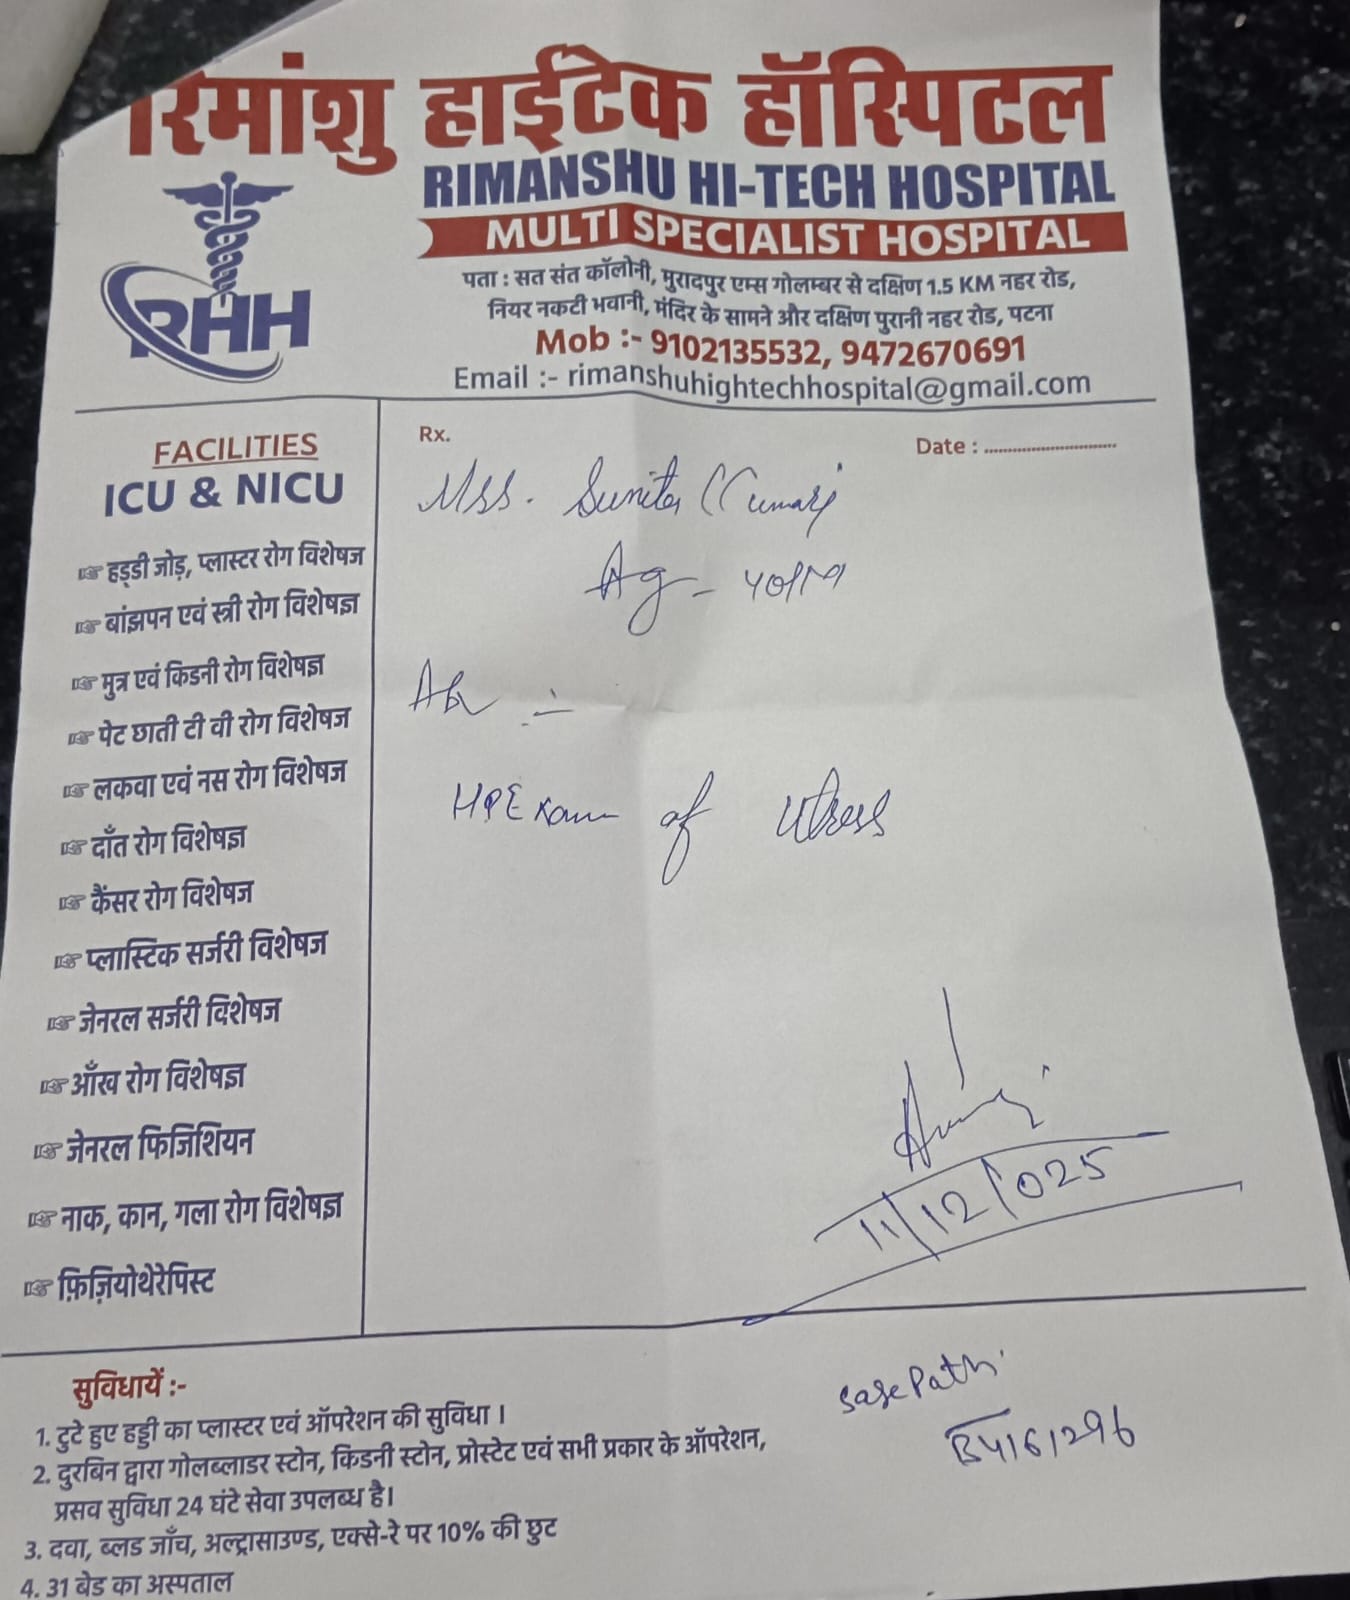 रिमांशु हाईटेक हॉस्पिटल
RIMANSHU HI-TECH HOSPITAL
MULTI SPECIALIST HOSPITAL
पता : सत संत कॉलोनी, मुरादपुर एम्स गोलम्बर से दक्षिण 1.5 KM नहर रोड,
नियर नकटी भवानी, मंदिर के सामने और दक्षिण पुरानी नहर रोड, पटना
Mob :- 9102135532, 9472670691
Email :- rimanshuhightechhospital@gmail.com
RHH
FACILITIES
ICU & NICU
हड्डी जोड़, प्लास्टर रोग विशेषज
बांझपन एवं स्त्री रोग विशेषज्ञ
मुत्र एवं किडनी रोग विशेषज्ञ
पेट छाती टी वी रोग विशेषज
लकवा एवं नस रोग विशेषज
दाँत रोग विशेषज्ञ
कैंसर रोग विशेषज
प्लास्टिक सर्जरी विशेषज
जेनरल सर्जरी विशेषज
आँख रोग विशेषज्ञ
जेनरल फिजिशियन
नाक, कान, गला रोग विशेषज्ञ
फ़िज़ियोथेरेपिस्ट
Rx.
Date : ............................
Mss. Sunita Kumari
Ag -
HPExam of Utress
11/12/025
सुविधायें :-
1. टुटे हुए हड्डी का प्लास्टर एवं ऑपरेशन की सुविधा ।
2. दुरबिन द्वारा गोलब्लाडर स्टोन, किडनी स्टोन, प्रोस्टेट एवं सभी प्रकार के ऑपरेशन,
प्रसव सुविधा 24 घंटे सेवा उपलब्ध है।
3. दवा, ब्लड जाँच, अल्ट्रासाउण्ड, एक्से-रे पर 10% की छुट
4. 31 बेड का अस्पताल
sagePath